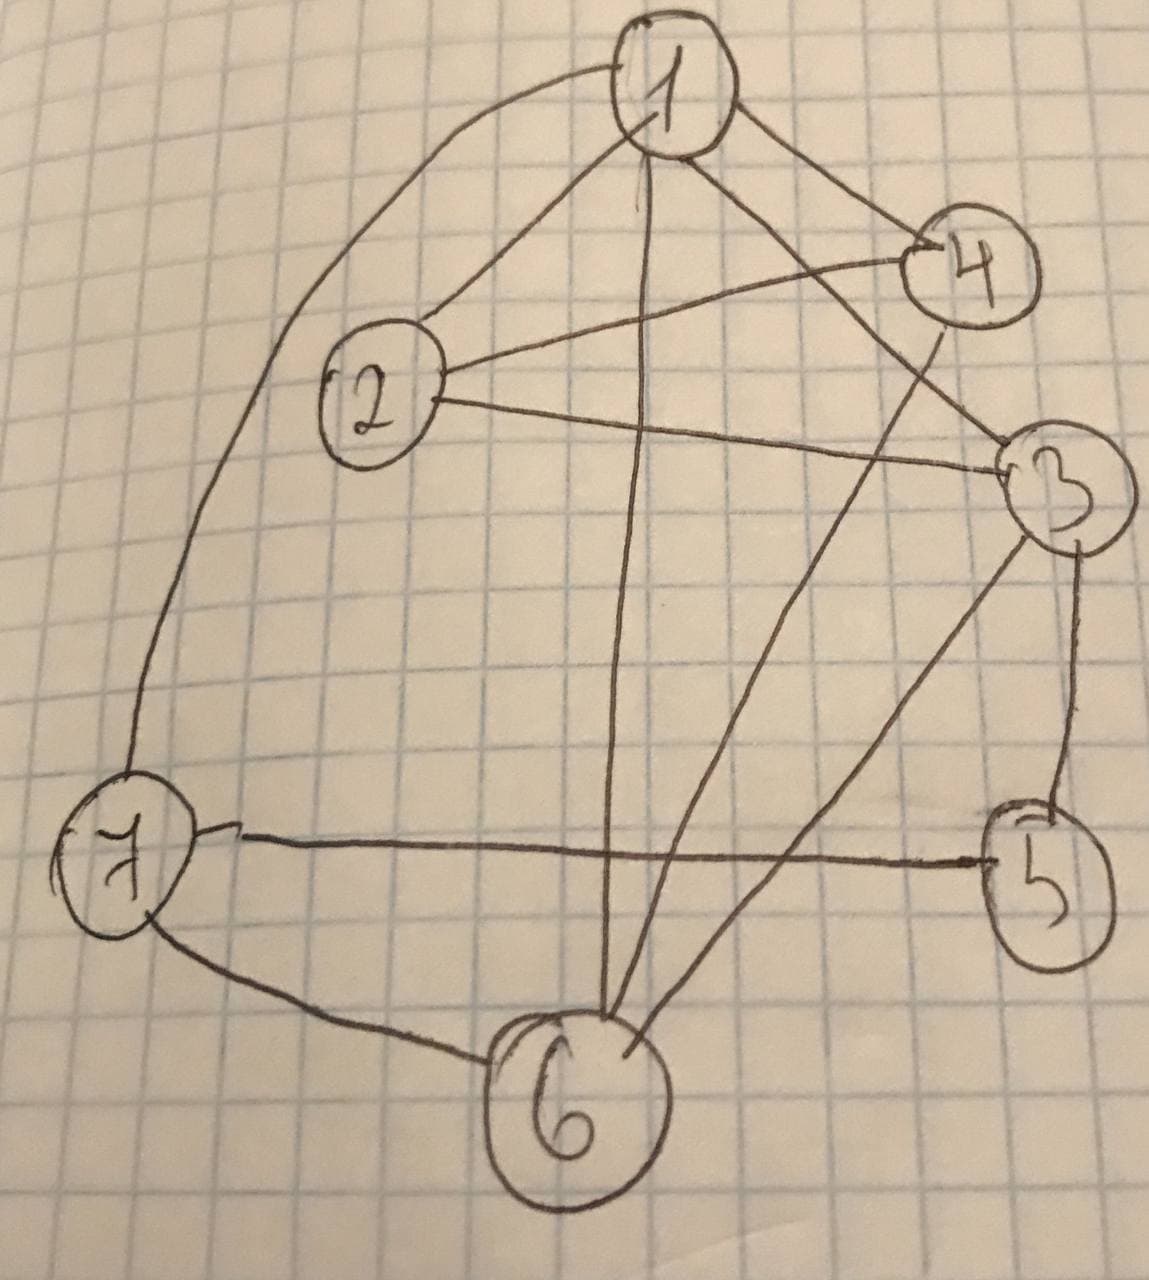 1
4
2
3
7
5
6